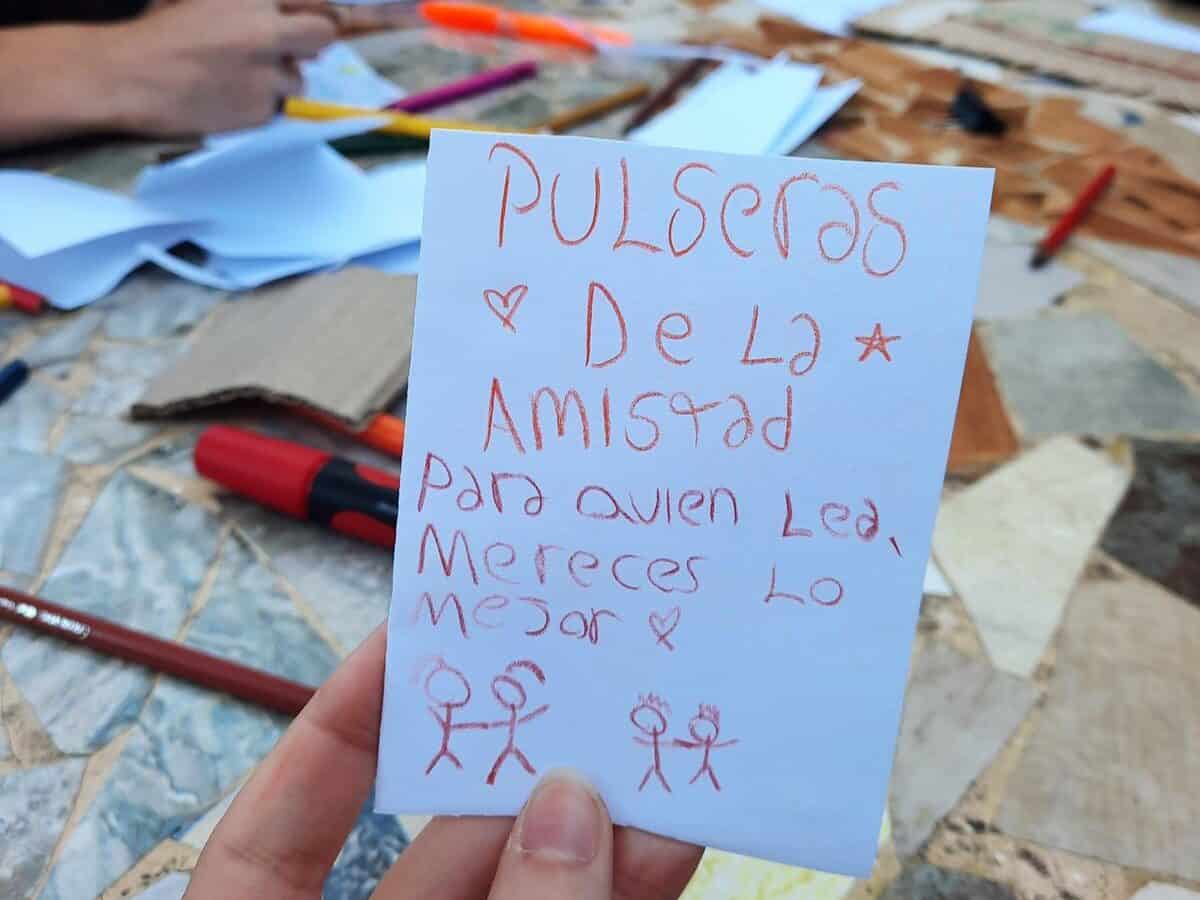 PULSeras
♡ De La ☆
AMIStad
Para quien Lea,
Mereces Lo
Mejor ♡